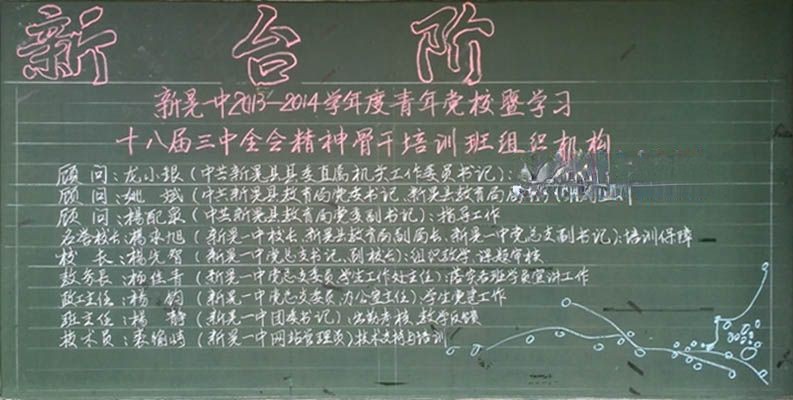 新台阶
新晃一中2013—2014学年度青年党校暨学习
十八届三中全会精神骨干培训班组织机构
顾 问:龙小银(中共新晃县县委直属机关工作委员书记):
顾 问:姚斌(中共新晃县教育局党委书记、新晃县教育局局
顾 问:杨配泉(中共新晃县教育局党委副书记):指导工作
名誉校长:杨来旭(新晃一中校长、新晃县教育局副局长、新晃一中党总支副书记):培训保障
校 长:杨先智(新晃一中党总支书记、副校长):组织教学、课题审核
教务长:杨佳青(新晃一中党总支委员、学生工作处主任):落实各班学员宣讲工作
政工主任:杨钧(新晃一中党总支委员、办公室主任):学生党建工作
班主任:杨静(新晃一中团委书记):出勤考核、教学反馈
技术员:(新晃一中网站管理员)技术支持与培训